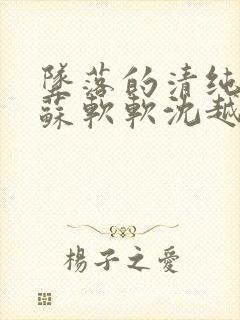 墜落的清純
蘇軟軟沈越
楊子之愛